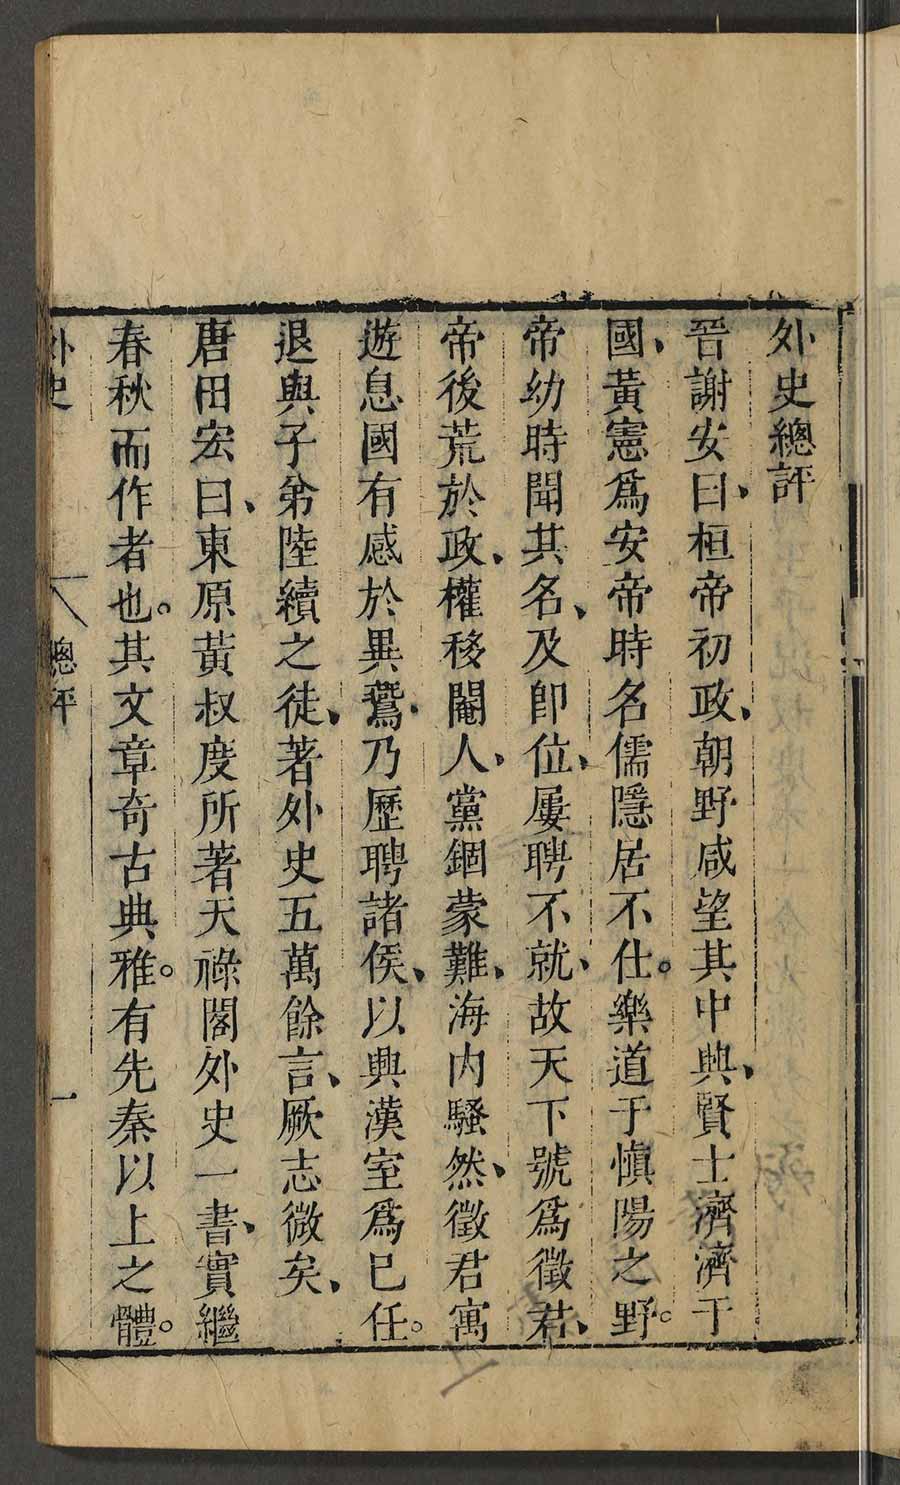 外史總評
晉謝安曰、桓帝初政、朝野咸望其中興、賢士濟濟于
國、黃憲爲安帝時名儒隱居不仕。樂道于愼陽之野。
帝幼時聞其名、及卽位、屢聘不就、故天下號爲徵君、
帝後荒於政、權移閹人、黨錮蒙難、海内騷然、徵君寓
遊息國有感於異鵞、乃歷聘諸侯、以興漢室爲巳任。
退與子弟陸續之徒、著外史五萬餘言、厥志微矣、
唐田宏曰、東原黃叔度所著天祿閣外史一書、實繼
春秋而作者也。其文章奇古典雅。有先秦以上之體。
外史 總評 一